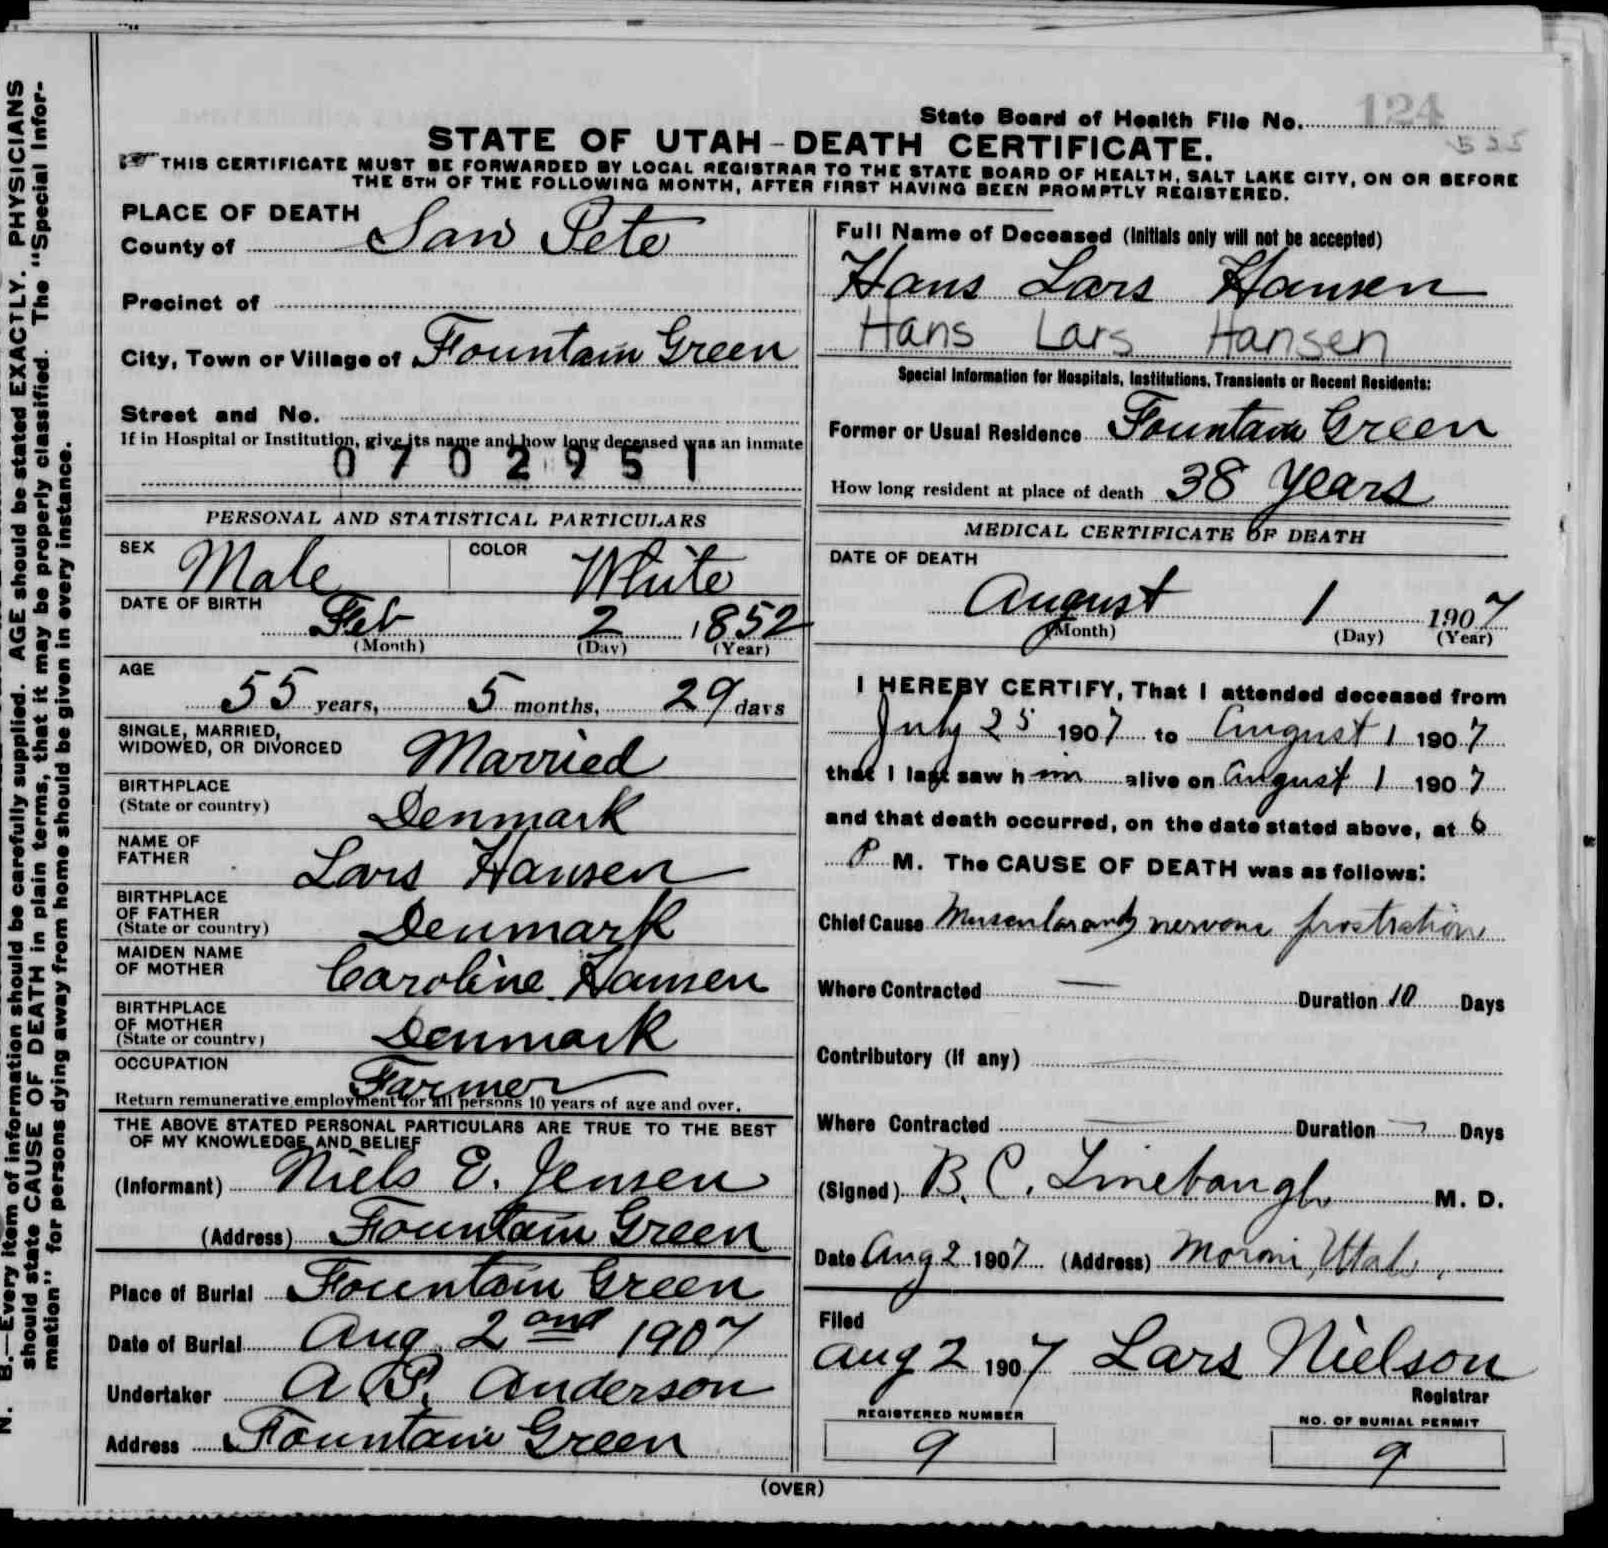 State Board of Health File No. 124
535
STATE OF UTAH-DEATH CERTIFICATE.
THIS CERTIFICATE MUST BE FORWARDED BY LOCAL REGISTRAR TO THE STATE BOARD OF HEALTH, SALT LAKE CITY, ON OR BEFORE
THE 5TH OF THE FOLLOWING MONTH, AFTER FIRST HAVING BEEN PROMPTLY REGISTERED.
PLACE OF DEATH
County of San Pete
Precinct of
City, Town or Village of Fountain Green
Street and No.
If in Hospital or Institution, give its name and how long deceased was an inmate
0702951
PERSONAL AND STATISTICAL PARTICULARS
SEX Male COLOR White
DATE OF BIRTH
Feb 2 1852
(Month) (Day) (Year)
AGE
55 years, 5 months, 29 days
SINGLE, MARRIED,
WIDOWED, OR DIVORCED Married
BIRTHPLACE
(State or country) Denmark
NAME OF
FATHER Lars Hansen
BIRTHPLACE
OF FATHER
(State or country) Denmark
MAIDEN NAME
OF MOTHER Caroline Hansen
BIRTHPLACE
OF MOTHER
(State or country) Denmark
OCCUPATION
Farmer
Return remunerative employment for all persons 10 years of age and over.
THE ABOVE STATED PERSONAL PARTICULARS ARE TRUE TO THE BEST
OF MY KNOWLEDGE AND BELIEF
(Informant) Niels E. Jensen
(Address) Fountain Green
Place of Burial Fountain Green
Date of Burial Aug 2 ond 1907
Undertaker A P. Anderson
Address Fountain Green
Full Name of Deceased (Initials only will not be accepted)
Hans Lars Hansen
Hans Lars Hansen
Special Information for Hospitals, Institutions, Transients or Recent Residents:
Former or Usual Residence Fountain Green
How long resident at place of death 38 years
MEDICAL CERTIFICATE OF DEATH
DATE OF DEATH
August 1 1907
(Month) (Day) (Year)
I HEREBY CERTIFY, That I attended deceased from
July 25 1907 to August 1 1907
that I last saw him alive on August 1 1907
and that death occurred, on the date stated above, at 6
P M. The CAUSE OF DEATH was as follows:
Chief Cause Muscular and nervous prostration
Where Contracted — Duration 10 Days
Contributory (if any)
Where Contracted Duration Days
(Signed) B. C. Linebaugh M. D.
Date Aug 2 1907 (Address) Moroni, Utah,
Filed
Aug 2 1907 Lars Nielson
Registrar
REGISTERED NUMBER
9
NO. OF BURIAL PERMIT
9
(OVER)
N. B.—Every item of information should be carefully supplied. AGE should be stated EXACTLY. PHYSICIANS
should state CAUSE OF DEATH in plain terms, that it may be properly classified. The "Special Infor-
mation" for persons dying away from home should be given in every instance.